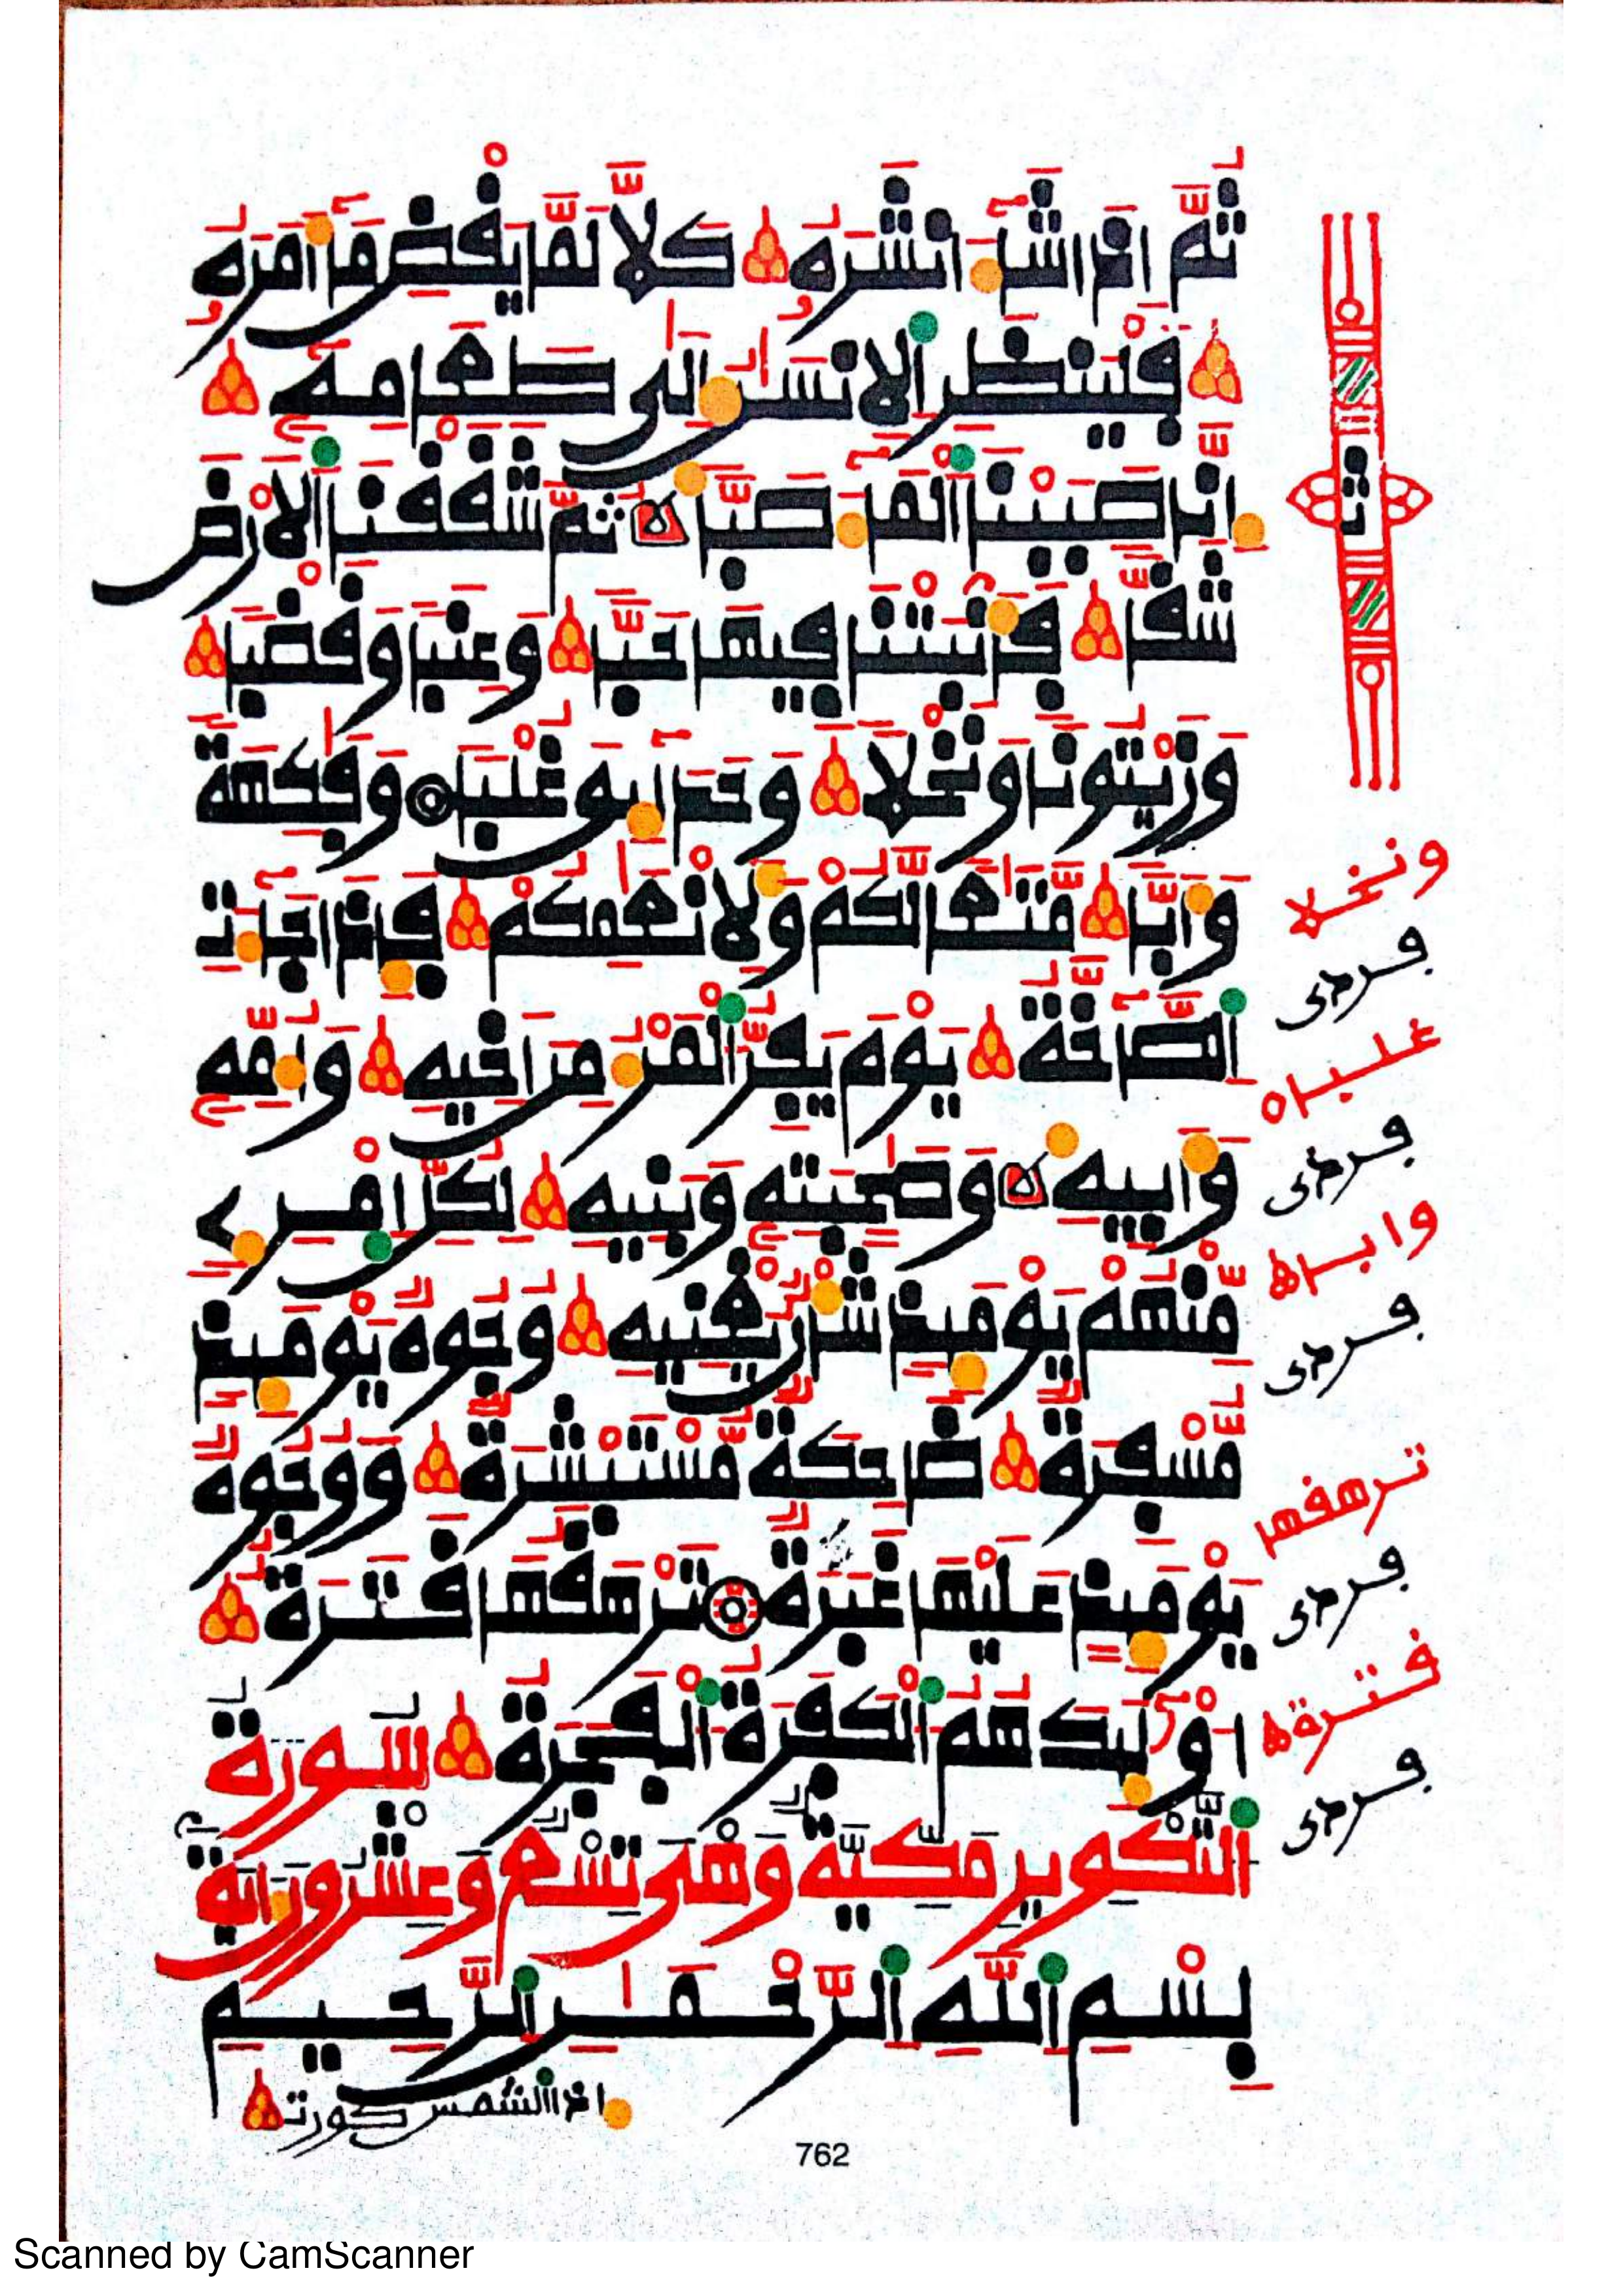 ثُمَّ إِذَا شَآءَ انشَرَهُۥ كَلَّا لَمَّا يَقْضِ مَآ أَمَرَهُۥ
فَلْيَنظُرِ اِلِانسَٰنُ إِلَىٰ طَعَامِهِۦٓ
إِنَّا صَبَبْنَا اَلْمَآءَ صَبّٗا ثُمَّ شَقَقْنَا اَلَارْضَ
شَقّٗا فَأَنۢبَتْنَا فِيهَا حَبّٗا وَعِنَبٗا وَقَضْبٗا
وَزَيْتُونٗا وَنَخْلٗا وَحَدَآئِقَ غُلْبٗا وَفَٰكِهَةٗ
وَأَبّٗا مَّتَٰعٗا لَّكُمْ وَلِأَنْعَٰمِكُمْ فَإِذَا جَآءَتِ
اِلصَّآخَّةُ يَوْمَ يَفِرُّ اُلْمَرْءُ مِنَ اَخِيهِ وَأُمِّهِۦ
وَأَبِيهِ وَصَٰحِبَتِهِۦ وَبَنِيهِ لِكُلِّ اِمْرِےٕٖ
مِّنْهُمْ يَوْمَئِذٖ شَأْنٞ يُغْنِيهِ وُجُوهٞ يَوْمَئِذٖ
مُّسْفِرَةٞ ضَاحِكَةٞ مُّسْتَبْشِرَةٞ وَوُجُوهٞ
يَوْمَئِذٍ عَلَيْهَا غَبَرَةٞ تَرْهَقُهَا قَتَرَةٌ
اوْلَٰٓئِكَ هُمُ اُلْكَفَرَةُ اُلْفَجَرَةُ سُورَةُ
اُلتَّكْوِيرِ مَكِّيَّةٌ وَهْىَ تِسْعٌ وَعِشْرُونَ ءَايَةً
بِسْمِ اِللَّهِ اِلرَّحْمَٰنِ اِلرَّحِيمِ
إذا الشمس كورت
762
ثمن
ونخلا
غلبا
وابا
ترهقها
قترة
Scanned by CamScanner